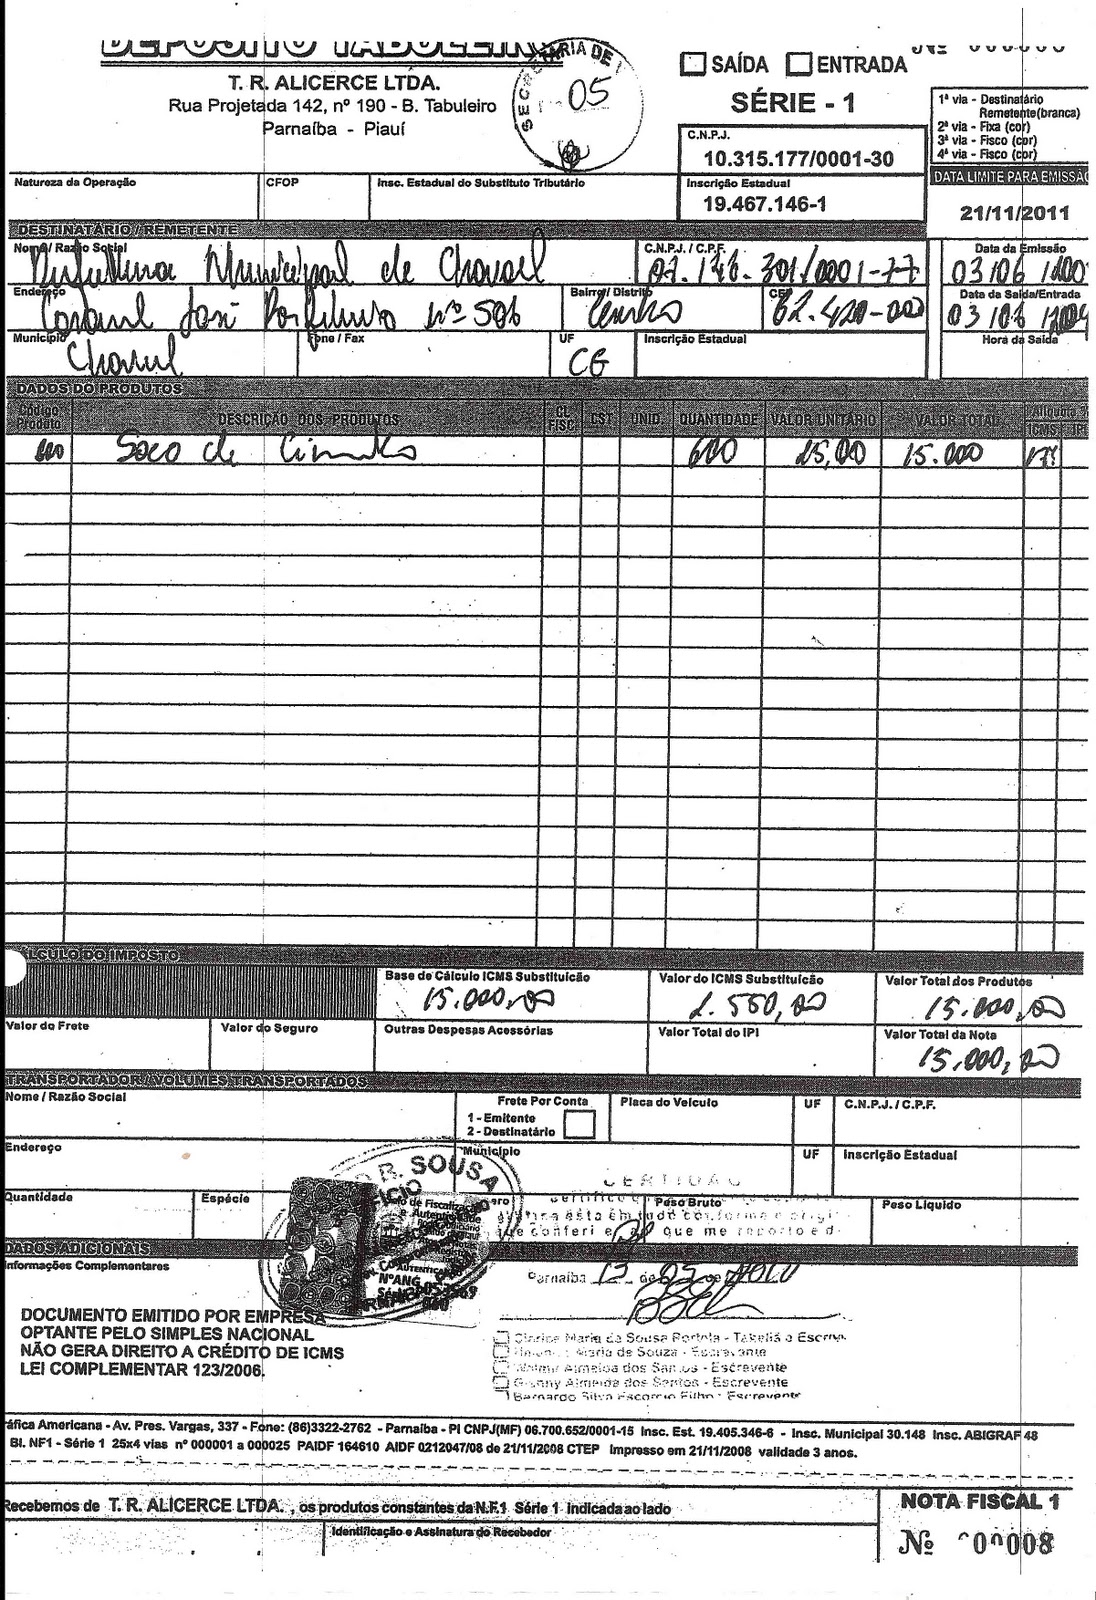 DEPÓSITO TABULEIRO
T. R. ALICERCE LTDA.
Rua Projetada 142, nº 190 - B. Tabuleiro
Parnaíba - Piauí
SECRETARIA DE
05
SAÍDA ENTRADA
Nº
SÉRIE - 1
1ª via - Destinatário
Remetente(branca)
2ª via - Fixa (cor)
3ª via - Fisco (cor)
4ª via - Fisco (cor)
C.N.P.J.
10.315.177/0001-30
DATA LIMITE PARA EMISSÃ
21/11/2011
Natureza da Operação CFOP Insc. Estadual do Substituto Tributário Inscrição Estadual
19.467.146-1
DESTINATÁRIO / REMETENTE
Nome/ Razão Social C.N.P.J. / C.P.F. Data da Emissão
Prefeitura Municipal de Chaval 03/06
Endereço Bairro / Distrito CEP Data da Saída/Entrada
Coronel José Porfilurio nº 506 Centro 62.420-000 03/06
Município Fone / Fax UF Inscrição Estadual Hora da Saída
Chaval CE
DADOS DO PRODUTOS
Código Produto DESCRIÇÃO DOS PRODUTOS CL. FISC. CST UNID. QUANTIDADE VALOR UNITÁRIO VALOR TOTAL Alíquota %
ICMS IPI
Saco de Cimento 600 25,00 15.000
CÁLCULO DO IMPOSTO
Base de Cálculo ICMS Substituicão Valor do ICMS Substituicão Valor Total dos Produtos
15.000,00 2.550,00 15.000,00
Valor do Frete Valor do Seguro Outras Despesas Acessórias Valor Total do IPI Valor Total da Nota
15.000,00
TRANSPORTADOR / VOLUMES TRANSPORTADOS
Nome / Razão Social Frete Por Conta Placa do Veículo UF C.N.P.J. / C.P.F.
1 - Emitente
2 - Destinatário
Endereço Município UF Inscrição Estadual
R. SOUSA
CERTIDÃO
Quantidade Espécie Peso Bruto Peso Líquido
está em tudo conforme o origi
que conferi e que me reporto e d
DADOS ADICIONAIS
Informações Complementares
Parnaíba 13 de
DOCUMENTO EMITIDO POR EMPRESA
OPTANTE PELO SIMPLES NACIONAL
NÃO GERA DIREITO A CRÉDITO DE ICMS
LEI COMPLEMENTAR 123/2006.
Maria de Sousa Portela - Tabeliã e Escrev.
Maria de Souza - Escrevente
Almeida dos Santos - Escrevente
Almeida dos Santos - Escrevente
Bernardo Silva Escorcio Filho - Escrevente
áfica Americana - Av. Pres. Vargas, 337 - Fone: (86)3322-2762 - Parnaíba - PI CNPJ(MF) 06.700.652/0001-15 Insc. Est. 19.405.346-6 - Insc. Municipal 30.148 Insc. ABIGRAF 48
Bl. NF1 - Série 1 25x4 vias nº 000001 a 000025 PAIDF 164610 AIDF 0212047/08 de 21/11/2008 CTEP Impresso em 21/11/2008 validade 3 anos.
Recebemos de T. R. ALICERCE LTDA. , os produtos constantes da N.F.1 Série 1 Indicada ao lado
Identificação e Assinatura do Recebedor
NOTA FISCAL 1
Nº 000008